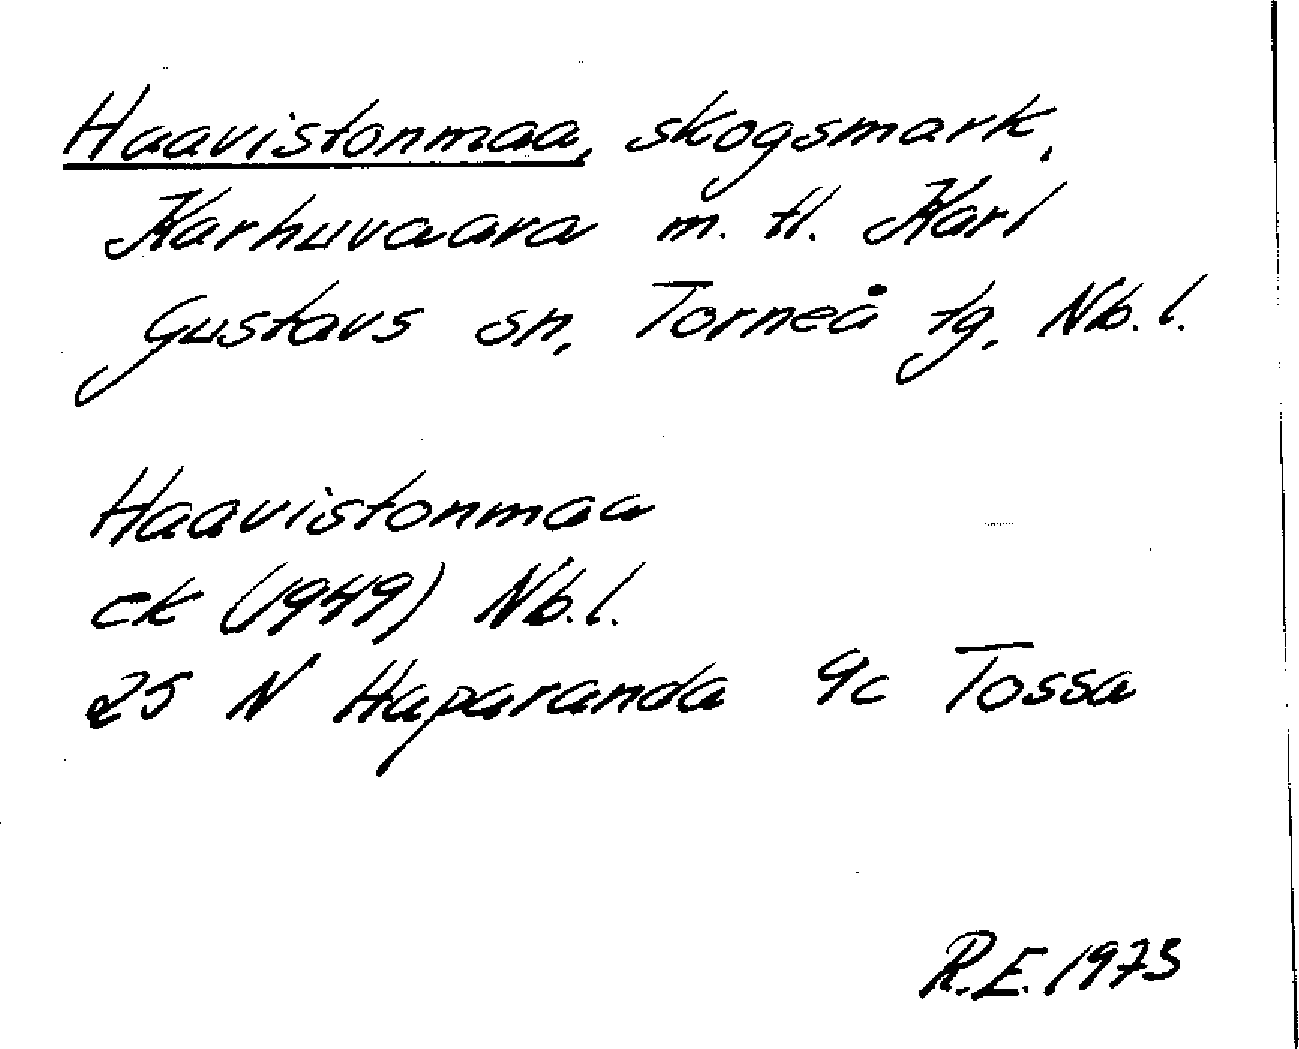 Haavistonmaa, skogsmark,
Karhuvaara m. fl. Karl
Gustavs sn, Torneå tg, Nb. l.
Haavistonmaa
ek (1949) Nb. l.
25 N Haparanda 9c Tossa
R.E. 1973